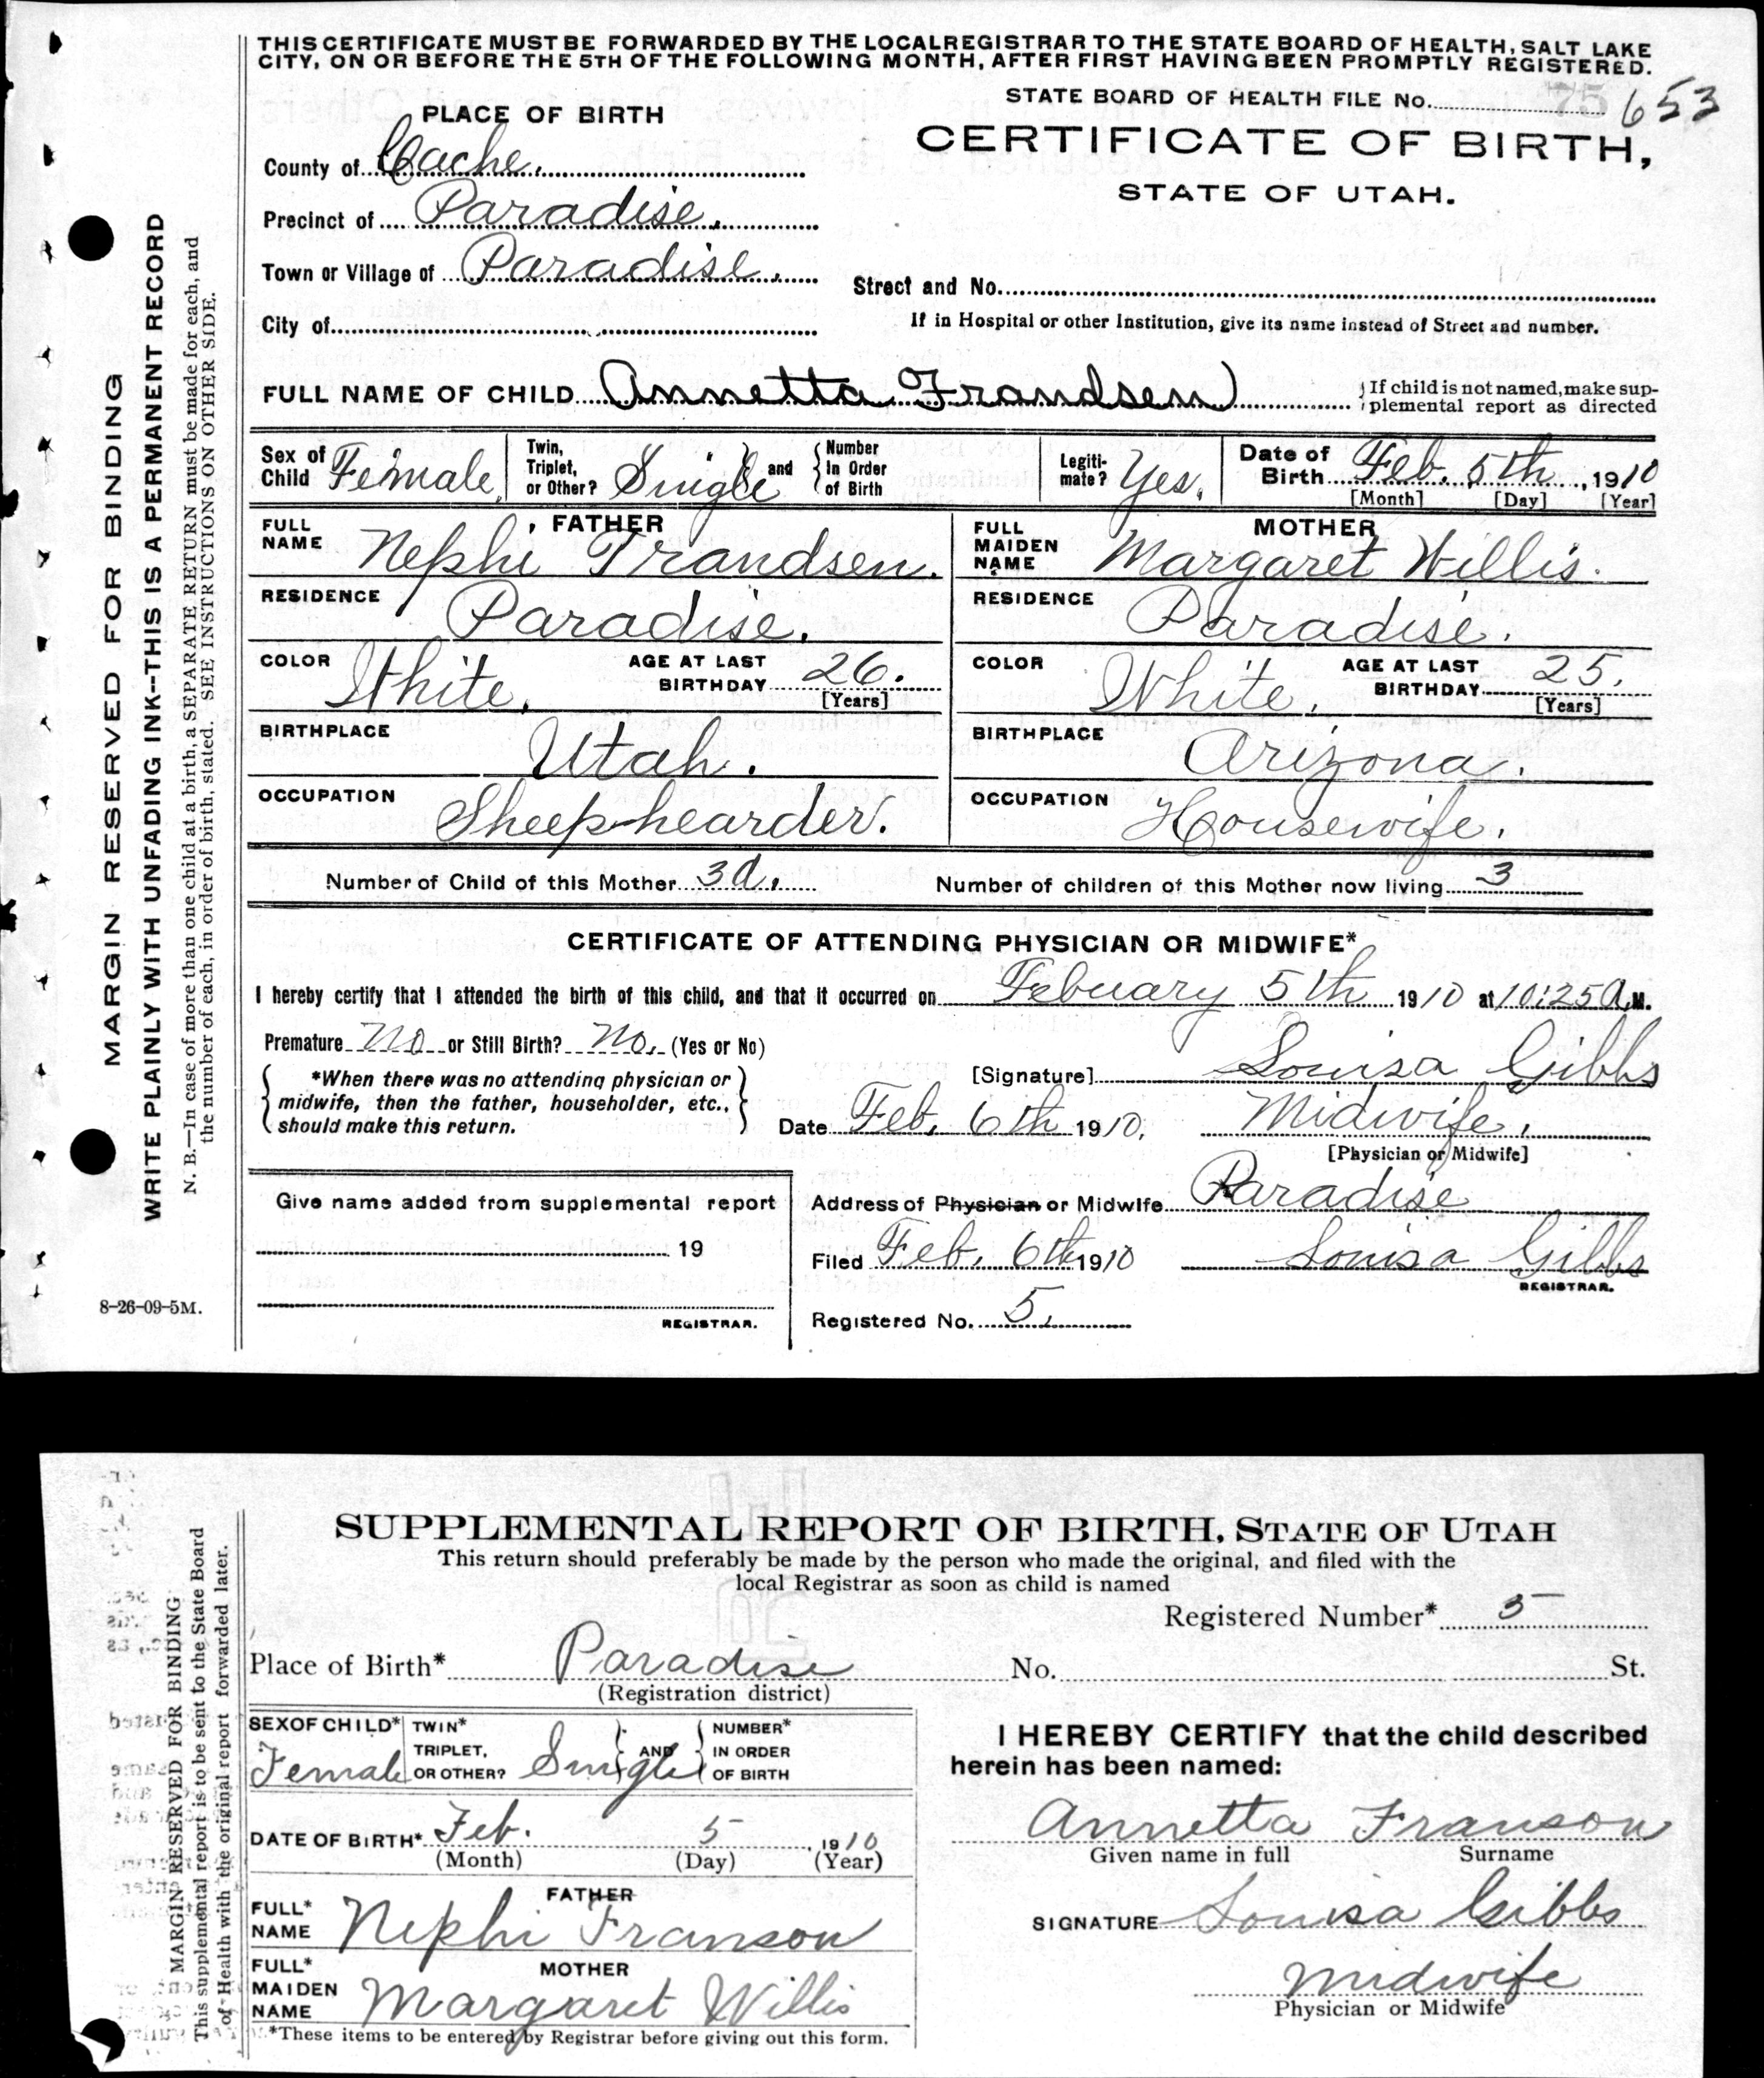 THIS CERTIFICATE MUST BE FORWARDED BY THE LOCAL REGISTRAR TO THE STATE BOARD OF HEALTH, SALT LAKE
CITY, ON OR BEFORE THE 5TH OF THE FOLLOWING MONTH, AFTER FIRST HAVING BEEN PROMPTLY REGISTERED.
STATE BOARD OF HEALTH FILE No. 75 653
PLACE OF BIRTH
CERTIFICATE OF BIRTH,
STATE OF UTAH.
County of Cache.
Precinct of Paradise.
Town or Village of Paradise.
Street and No.
City of
If in Hospital or other Institution, give its name instead of Street and number.
FULL NAME OF CHILD Annetta Frandsen
If child is not named, make sup-
plemental report as directed
Sex of Child Female.
Twin, Triplet, or Other? Single and Number In Order of Birth
Legiti-mate? Yes.
Date of Birth Feb. 5th, 1910
[Month] [Day] [Year]
FATHER
FULL NAME Nephi Frandsen.
MOTHER
FULL MAIDEN NAME Margaret Willis.
RESIDENCE Paradise.
RESIDENCE Paradise.
COLOR White. AGE AT LAST BIRTHDAY 26. [Years]
COLOR White. AGE AT LAST BIRTHDAY 25. [Years]
BIRTHPLACE Utah.
BIRTHPLACE Arizona.
OCCUPATION Sheep-hearder.
OCCUPATION Housewife.
Number of Child of this Mother 3d. Number of children of this Mother now living 3
CERTIFICATE OF ATTENDING PHYSICIAN OR MIDWIFE*
I hereby certify that I attended the birth of this child, and that it occurred on Febuary 5th 1910 at 10:25 A.M.
Premature No or Still Birth? No. (Yes or No)
[Signature] Louisa Gibbs
*When there was no attending physician or
midwife, then the father, householder, etc.,
should make this return.
Date Feb. 6th 1910. Midwife.
[Physician or Midwife]
Give name added from supplemental report
19
REGISTRAR.
Address of Physician or Midwife Paradise
Filed Feb. 6th 1910 Louisa Gibbs
REGISTRAR.
Registered No. 5.
MARGIN RESERVED FOR BINDING
WRITE PLAINLY WITH UNFADING INK--THIS IS A PERMANENT RECORD
N. B.—In case of more than one child at a birth, a SEPARATE RETURN must be made for each, and
the number of each, in order of birth, stated. SEE INSTRUCTIONS ON OTHER SIDE.
8-26-09-5M.
SUPPLEMENTAL REPORT OF BIRTH, STATE OF UTAH
This return should preferably be made by the person who made the original, and filed with the
local Registrar as soon as child is named
Registered Number* 5
Place of Birth* Paradise No. St.
(Registration district)
SEX OF CHILD* Female
TWIN* TRIPLET, OR OTHER? Single AND NUMBER* IN ORDER OF BIRTH
DATE OF BIRTH* Feb. 5, 1910
(Month) (Day) (Year)
FATHER
FULL* NAME Nephi Franson
MOTHER
FULL* MAIDEN NAME Margaret Willis
*These items to be entered by Registrar before giving out this form.
I HEREBY CERTIFY that the child described
herein has been named:
Annetta Franson
Given name in full Surname
SIGNATURE Louisa Gibbs
Midwife
Physician or Midwife
MARGIN RESERVED FOR BINDING
This supplemental report is to be sent to the State Board
of Health with the original report forwarded later.